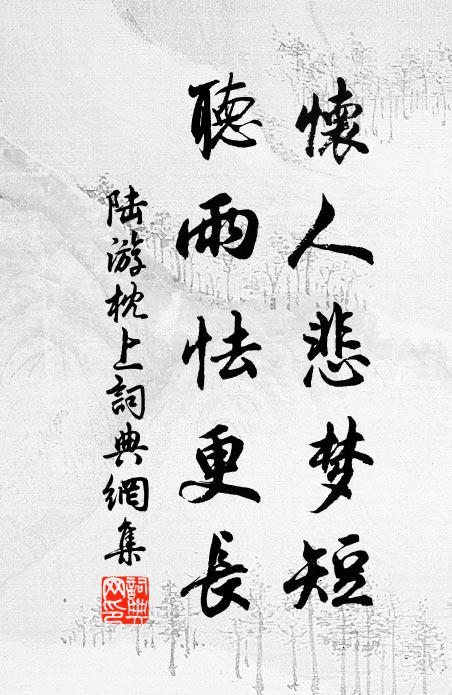 懷人悲梦短
聽雨怯更長
陆游枕上詞典網集
詞典
网印